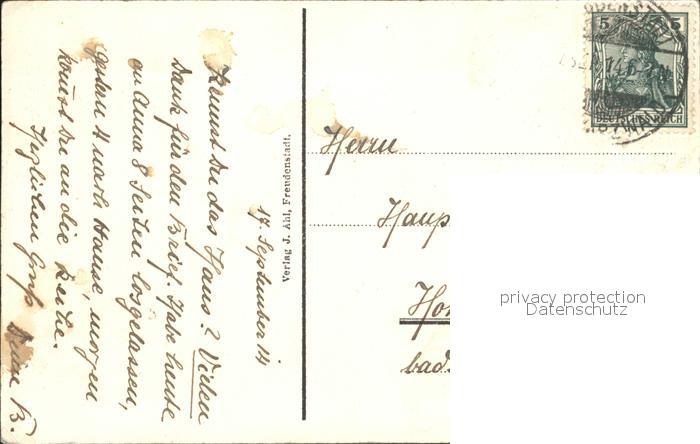 17. September 14
Kennst du das Haus? Vielen
Dank für den Brief. Habe heute
an Anna 8 Seiten losgelassen,
gestern 4 nach Hause, morgen
kommst du an die Reihe.
Herzlichen Gruß
Deine B.
Verlag J. Ahl, Freudenstadt.
5 5
DEUTSCHES REICH
Herrn
Haup
Ho
bad.
privacy protection
Datenschutz